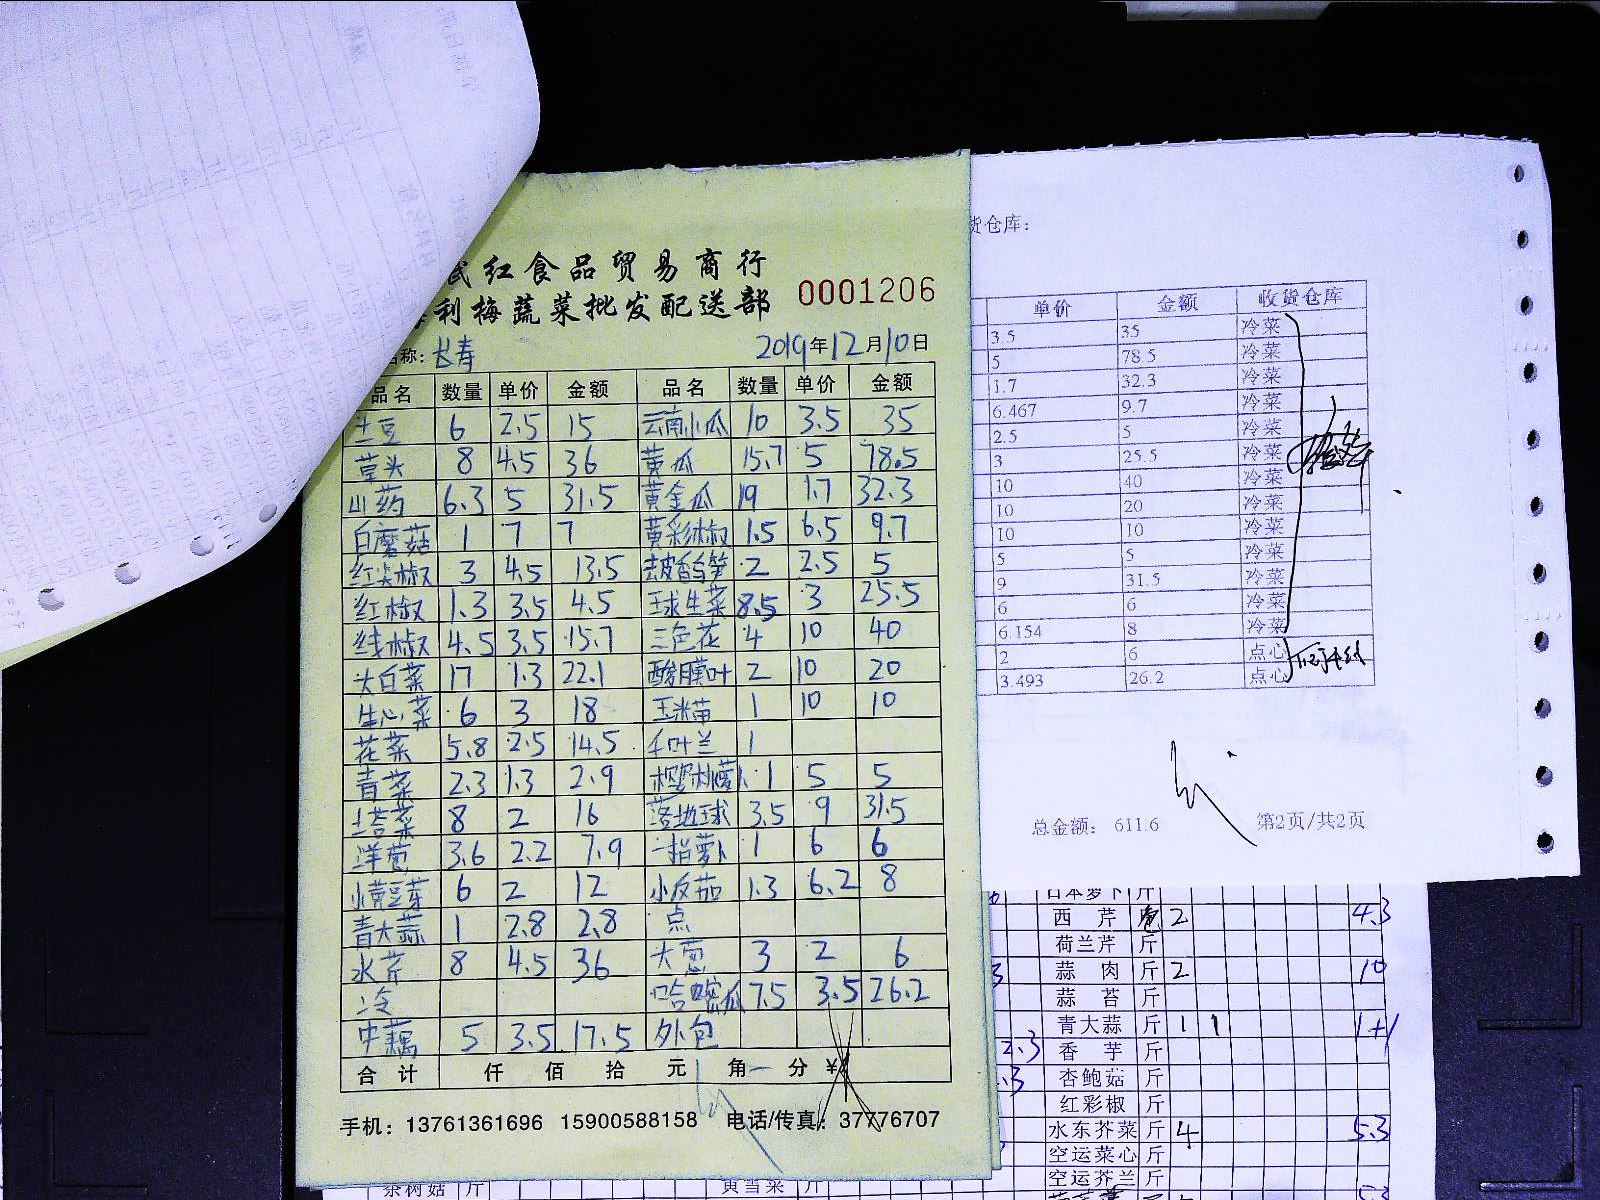 红食品贸易商行
利梅蔬菜批发配送部 0001206
称: 长寿 2019年12月10日
品名 数量 单价 金额 品名 数量 单价 金额
土豆 6 2.5 15 云南小瓜 10 3.5 35
草头 8 4.5 36 黄瓜 15.7 5 78.5
山药 6.3 5 31.5 黄金瓜 19 1.7 32.3
白蘑菇 1 7 7 黄彩椒 1.5 6.5 9.7
红尖椒 3 4.5 13.5 2 2.5 5
红椒 1.3 3.5 4.5 球生菜 8.5 3 25.5
线椒 4.5 3.5 15.7 三色花 4 10 40
大白菜 17 1.3 22.1 酸膜叶 2 10 20
生心菜 6 3 18 玉米苗 1 10 10
花菜 5.8 2.5 14.5 千叶兰 1
青菜 2.3 1.3 2.9 樱桃萝卜 1 5 5
塔菜 8 2 16 落地球 3.5 9 31.5
洋葱 3.6 2.2 7.9 一指萝卜 1 6 6
小黄豆芽 6 2 12 小反茄 1.3 6.2 8
青大蒜 1 2.8 2.8 点
水芹 8 4.5 36 大葱 3 2 6
冷 哈蜜瓜 7.5 3.5 26.2
中藕 5 3.5 17.5 外包
合计 仟 佰 拾 元 角 分 ¥
手机: 13761361696 15900588158 电话/传真: 37776707
货仓库:
单价 金额 收货仓库
3.5 35 冷菜
5 78.5 冷菜
1.7 32.3 冷菜
6.467 9.7 冷菜
2.5 5 冷菜
3 25.5 冷菜
10 40 冷菜
10 20 冷菜
10 10 冷菜
5 5 冷菜
9 31.5 冷菜
6 6 冷菜
6.154 8 冷菜
2 6 点心
3.493 26.2 点心
总金额: 611.6 第2页/共2页
日本萝卜 斤
西芹 2 4.3
荷兰芹 斤
蒜肉 斤 2 10
蒜苔 斤
青大蒜 斤 1 1 1+1
2.3 香芋 斤
.3 杏鲍菇 斤
红彩椒 斤
水东芥菜 斤 4 5.3
空运菜心 斤
空运芥兰 斤
茶树菇 斤 黄当菜 斤